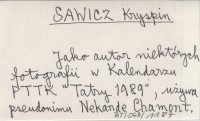 SAWICZ Kryspin
Jako autor niektórych
fotografii w Kalendarzu
PTTK "Tatry 1989", używa
pseudonimu Nekande Chamont.
BT/OGŁ/1187